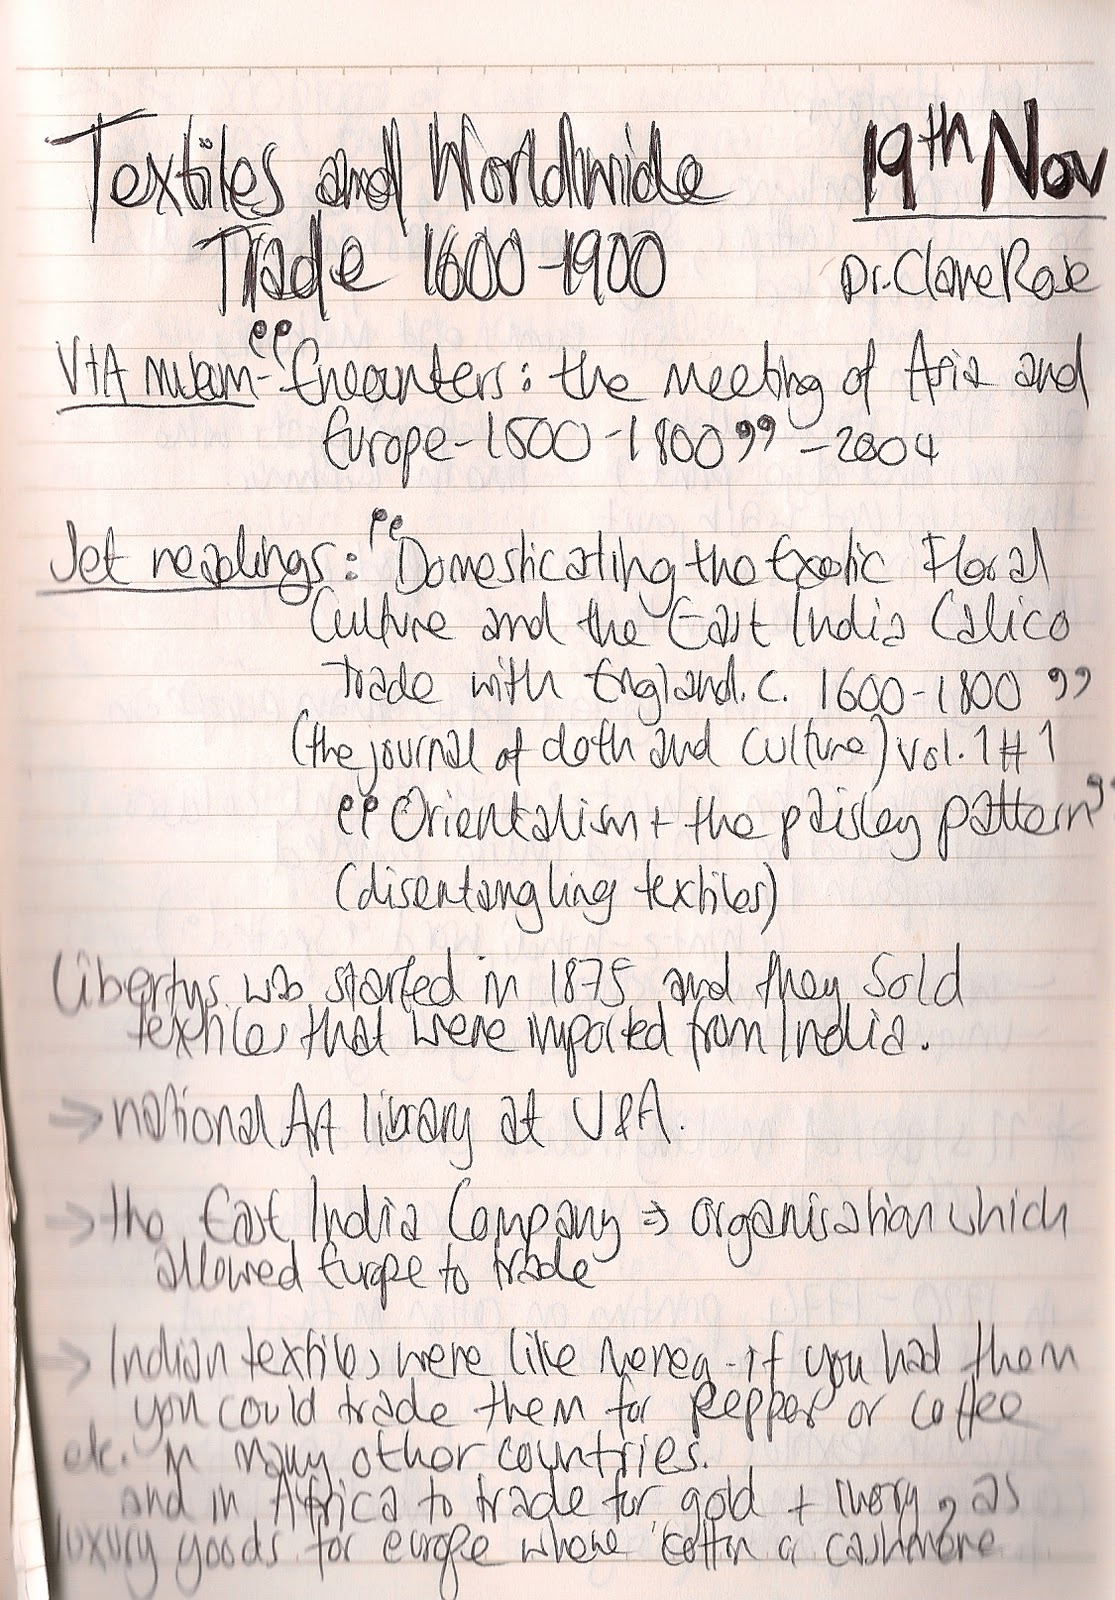 Textiles and Worldwide
19th Nov
Trade 1600-1900
Dr. Clare Rose
V+A museum- "Encounters: the meeting of Asia and
Europe-1500-1800" -2004
Set readings: "Domesticating the Exotic Floral
Culture and the East India Calico
Trade with England. c. 1600-1800"
(the journal of cloth and culture) vol. 1 # 1
"Orientalism + the paisley pattern"
(disentangling textiles)
Libertys was started in 1875 and they sold
textiles that were imported from India.
⇒ national Art library at V&A.
⇒ the East India Company ⇒ organisation which
allowed Europe to trade
⇒ Indian textiles were like - if you had them
you could trade them for pepper or coffee
etc. in many other countries.
and in Africa to trade for gold + ivory, as
luxury goods for europe where cotton a cashmere